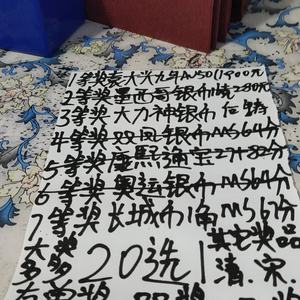 1等奖袁大头九年AU50(1900元
2等奖墨西哥银币
3等奖大力神银币
4等奖双凤银币MS64分
5等奖康熙通宝27+82分
6等奖奥运银币MS64分
7等奖长城币1角MS67分
大奖 其它奖品
多多 20选1 清.宋.